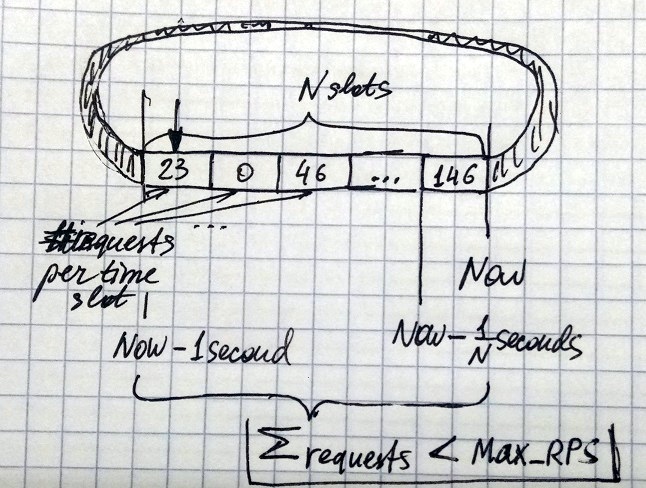 N slots
23 0 46 ... 146
#requests
...
per time
slot
Now
Now - 1 second
Now - 1/N seconds
∑ requests < Max_RPS